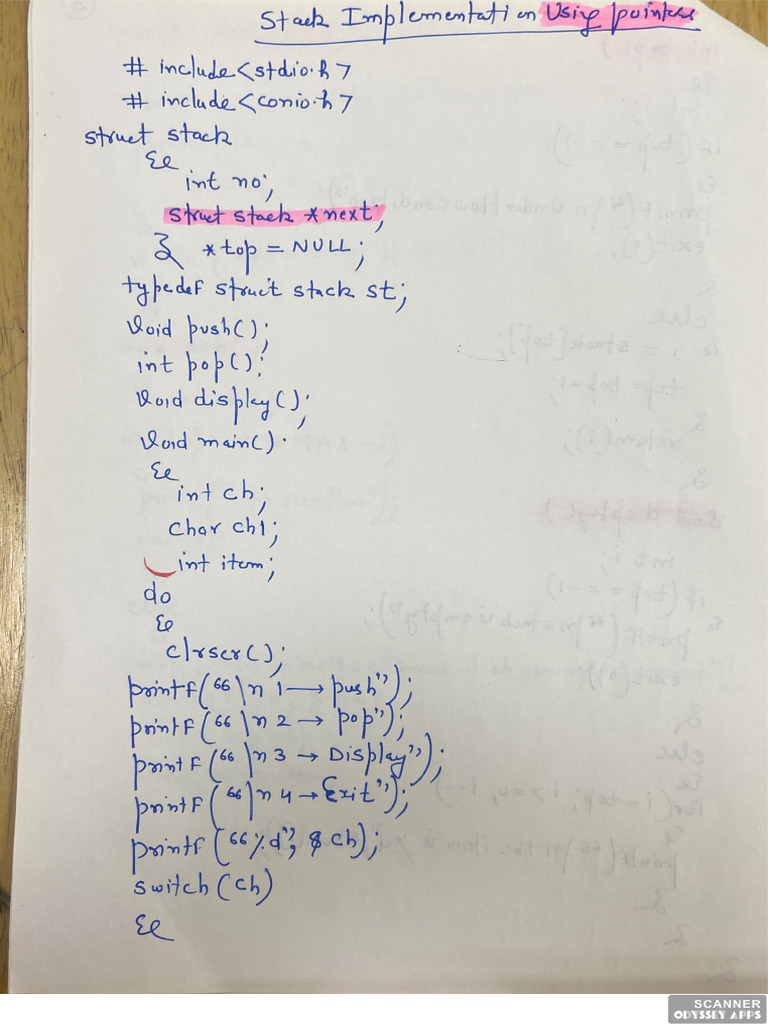 Stack Implementation Using pointers
# include<stdio.h>
# include<conio.h>
struct stack
{
int no;
struct stack *next;
} *top = NULL;
typedef struct stack st;
void push();
int pop();
void display();
void main()
{
int ch;
char ch1;
int item;
do
{
clrscr();
printf("\n 1 → push");
printf("\n 2 → pop");
printf("\n 3 → Display");
printf("\n 4 → Exit");
printf("%d", & ch);
switch(ch)
{
SCANNER
ODYSSEY APPS